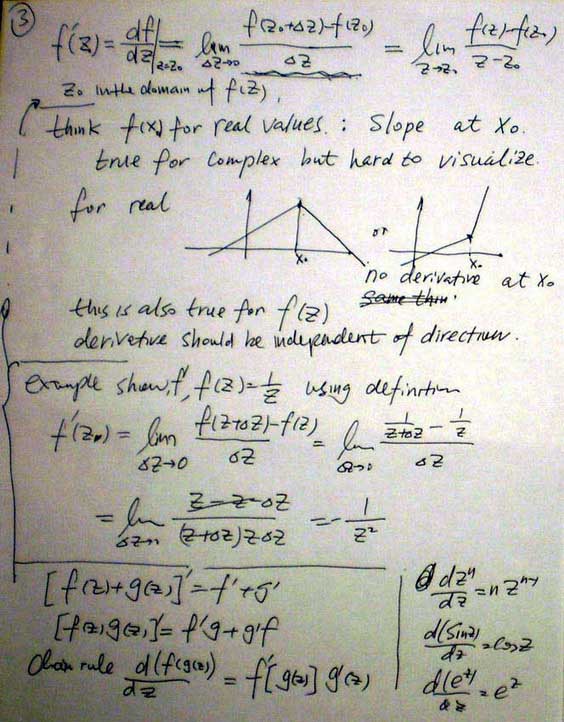 ③
f'(z) = df/dz|z=z₀ = lim Δz→0 (f(z₀+Δz)-f(z₀))/Δz = lim z→z₀ (f(z)-f(z₀))/(z-z₀)
z₀ in the domain of f(z),
think f(x) for real values. : Slope at x₀.
true for complex but hard to visualize.
for real
or
x₀
x₀
no derivative at x₀
same thin.
this is also true for f(z)
derivative should be independent of direction.
example show, f', f(z)=1/z using definition
f'(z₀) = lim Δz→0 (f(z+Δz)-f(z))/Δz = lim Δz→0 (1/(z+Δz) - 1/z)/Δz
= lim Δz→0 (z-z-Δz)/((z+Δz)zΔz) = -1/z²
[f(z)+g(z)]' = f'+g'
[f(z)g(z)]' = f'g+g'f
Chain rule d(f(g(z))/dz = f'[g(z)] g'(z)
dzⁿ/dz = n zⁿ⁻¹
d(sinz)/dz = cosz
d(e^z)/dz = e^z